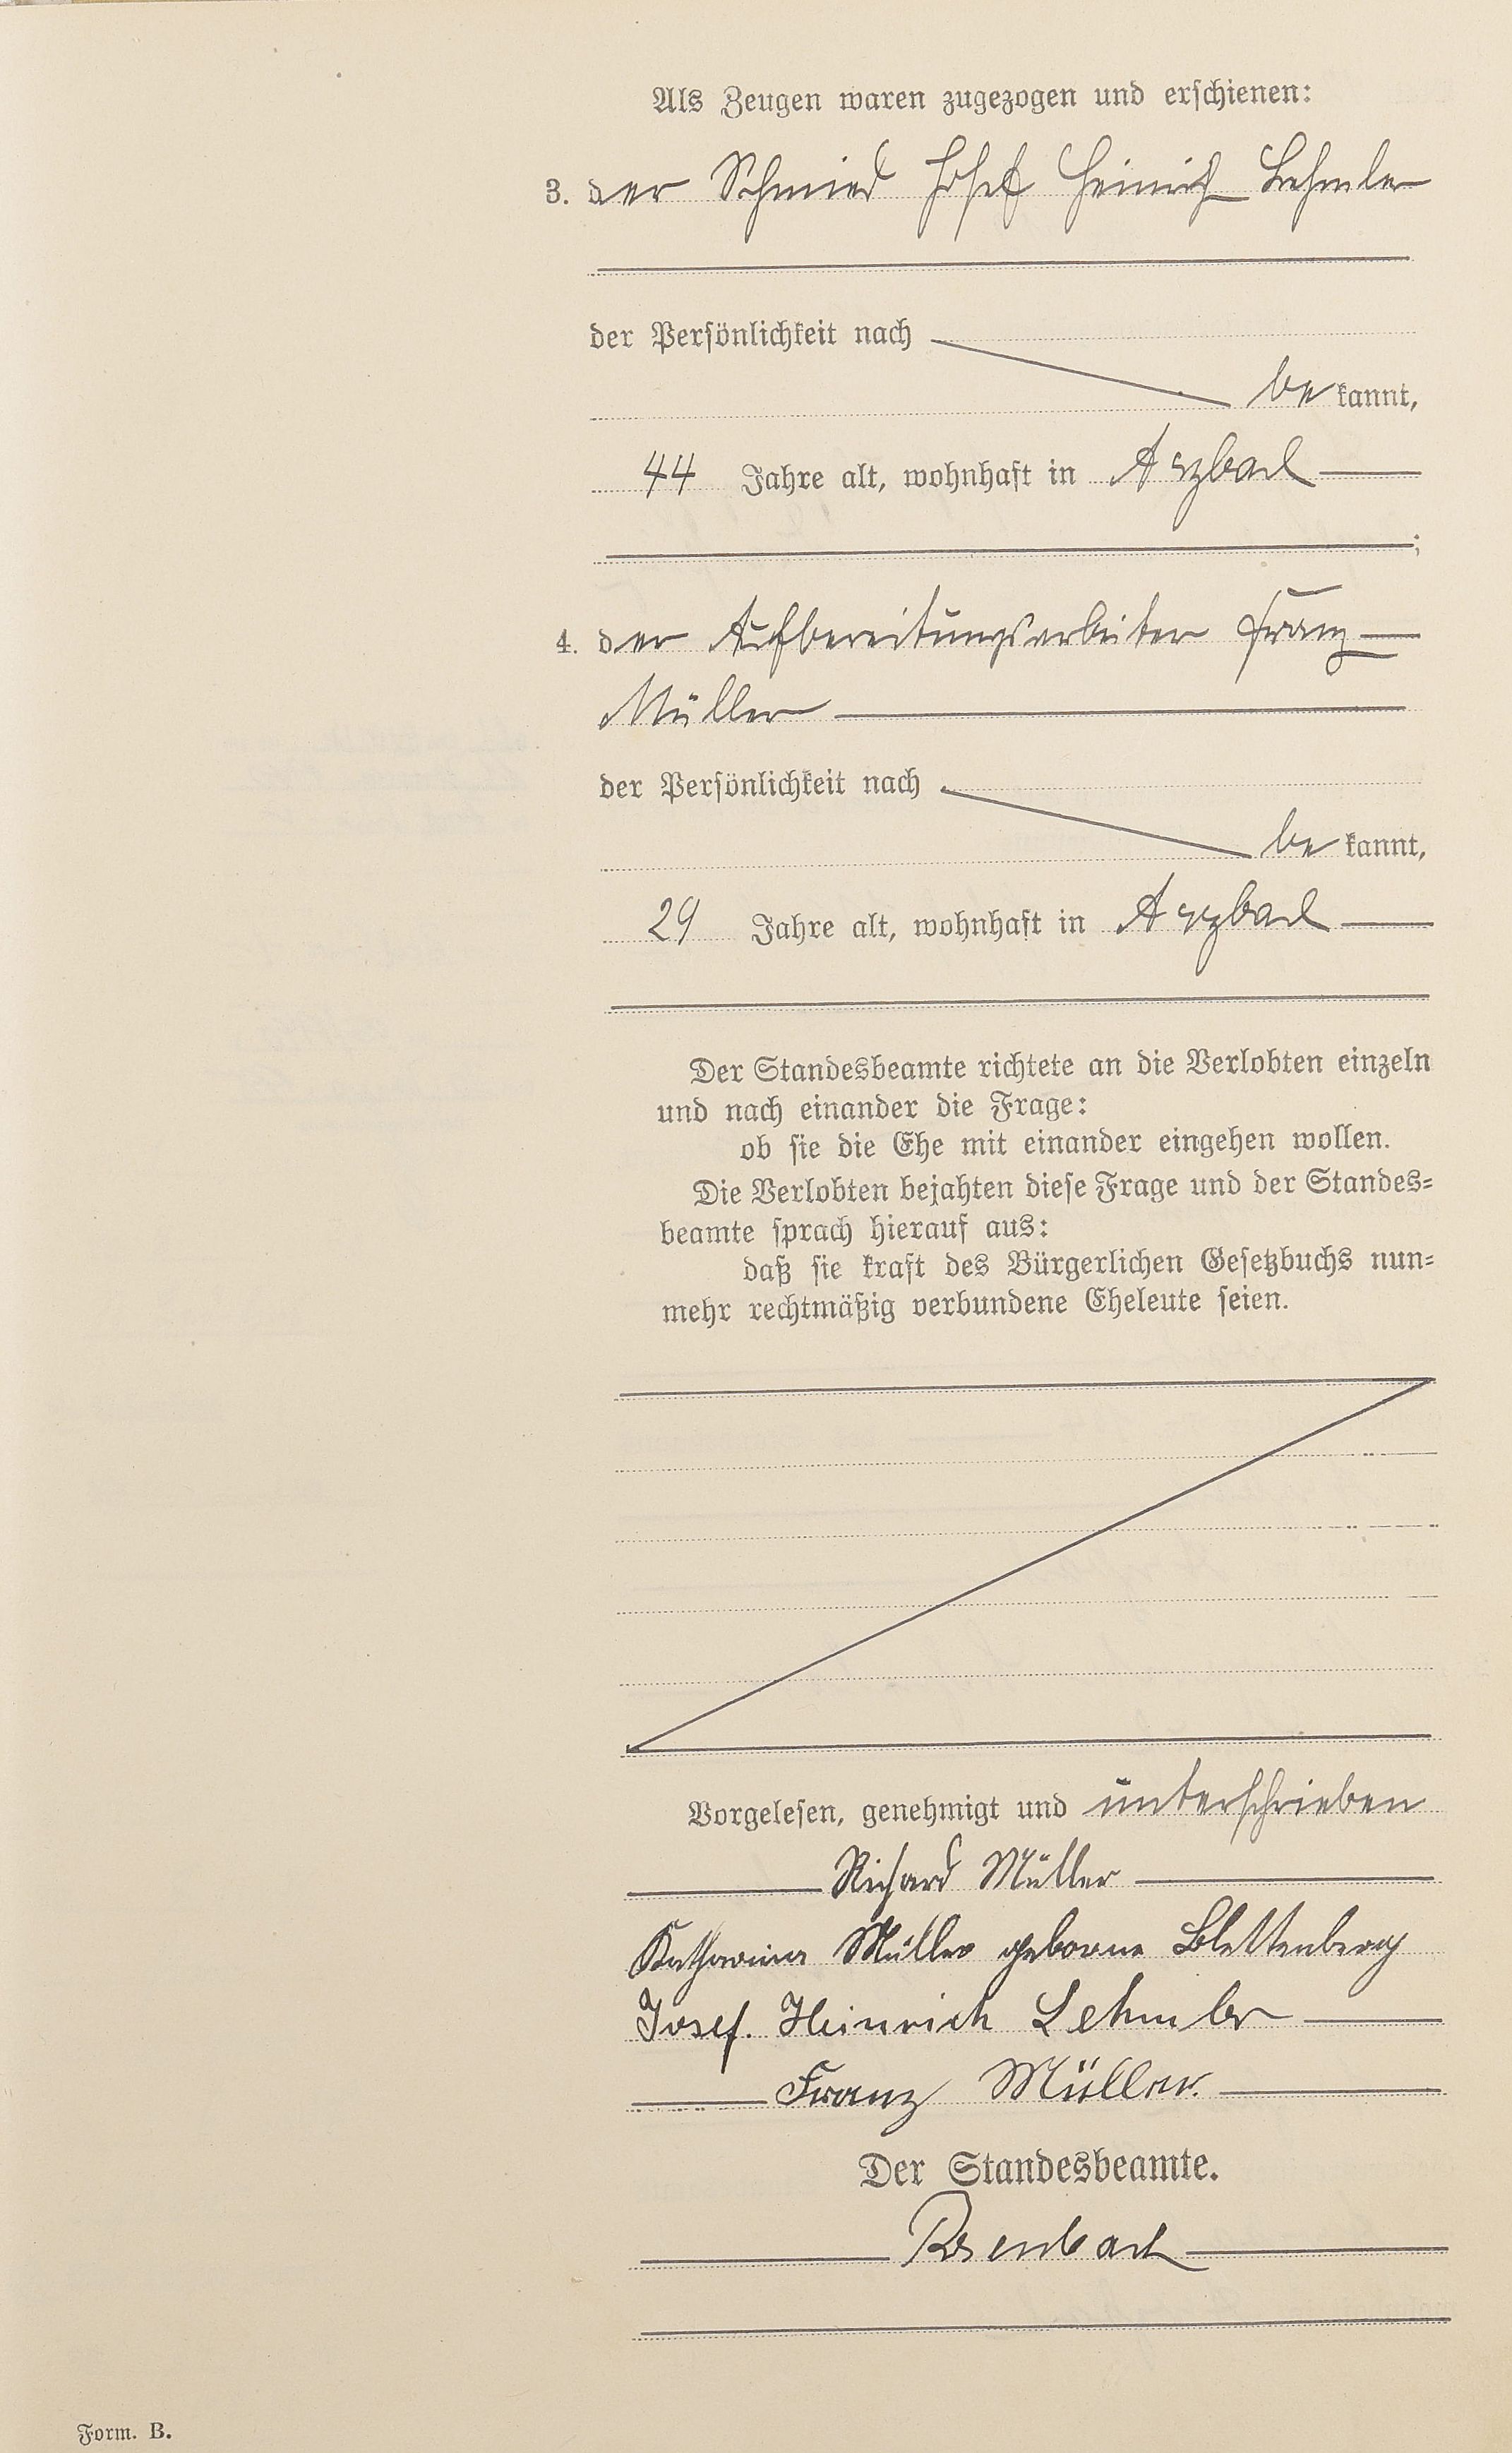 Als Zeugen waren zugezogen und erschienen:
3. der Schmied Josef Heinrich Lehmler
der Persönlichkeit nach
be kannt,
44 Jahre alt, wohnhaft in Arzbach
;
4. der Aufbereitungsarbeiter Franz
Müller
der Persönlichkeit nach
be kannt,
29 Jahre alt, wohnhaft in Arzbach
Der Standesbeamte richtete an die Verlobten einzeln
und nach einander die Frage:
ob sie die Ehe mit einander eingehen wollen.
Die Verlobten bejahten diese Frage und der Standes=
beamte sprach hierauf aus:
daß sie kraft des Bürgerlichen Gesetzbuchs nun=
mehr rechtmäßig verbundene Eheleute seien.
Vorgelesen, genehmigt und unterschrieben
Richard Müller
Katharina Müller geborne Blettenberg
Josef. Heinrich Lehmler
Franz Müller.
Der Standesbeamte.
Rosenbach
Form. B.